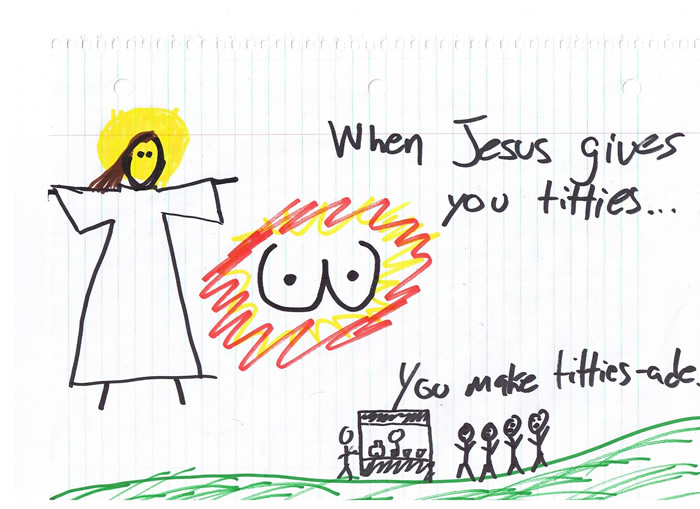 When Jesus gives
you titties...
You make titties-ade.